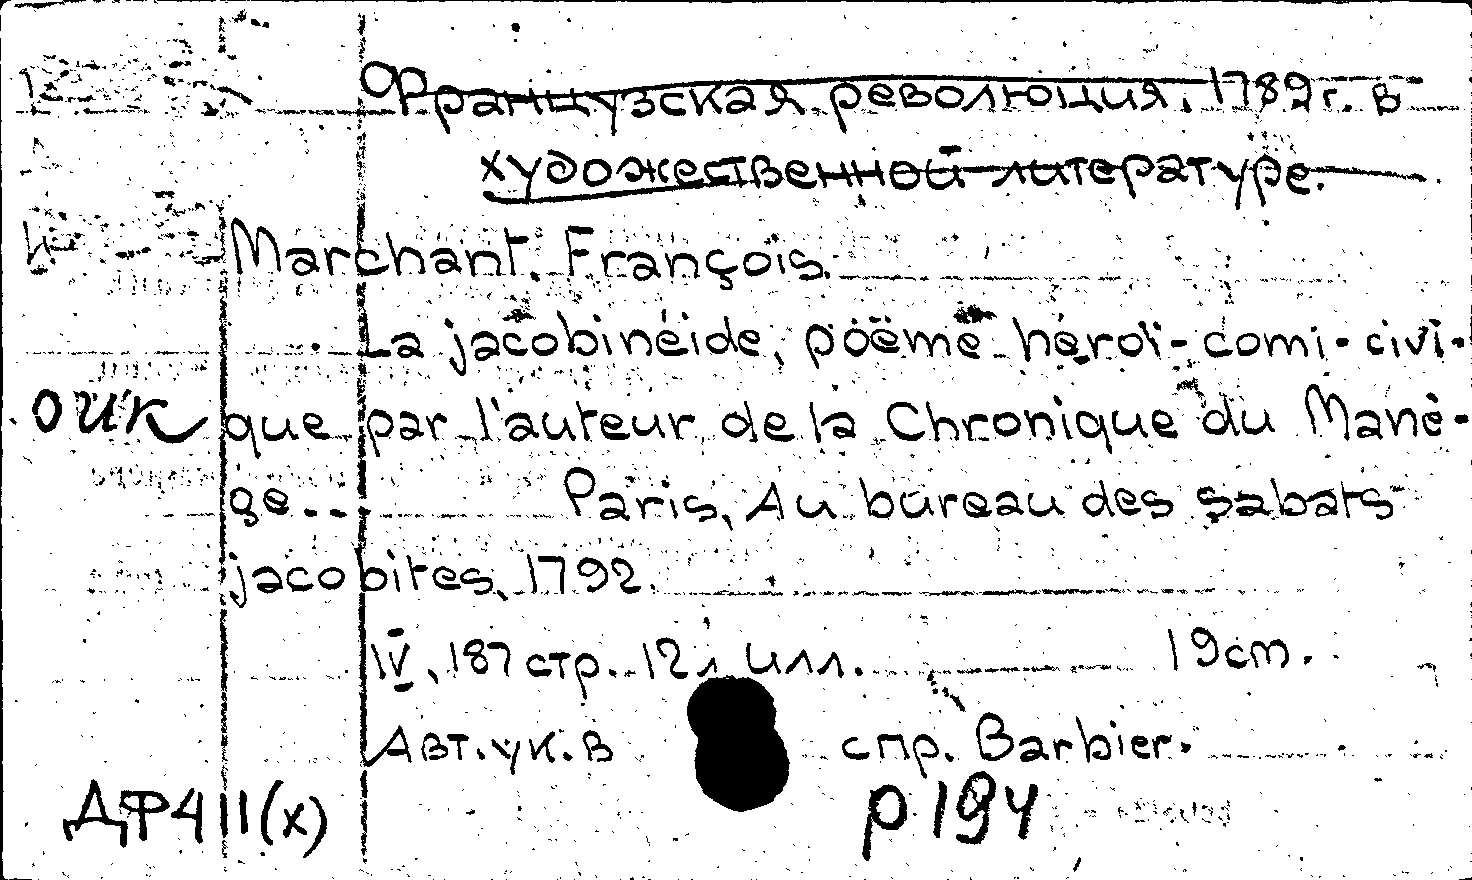 Французская революция. 1789 г. в
художественной литературе.
Marchant, François.
La jacobinéide, poëme héroï-comi-civi-
оик que par l'auteur de la Chronique du Manè-
ge... Paris, Au bureau des sabats
jacobites, 1792.
IV, 187 стр. 12 л илл. 19cm.
Авт. ук. в спр. Barbier.
ДФ4 II(x) р194